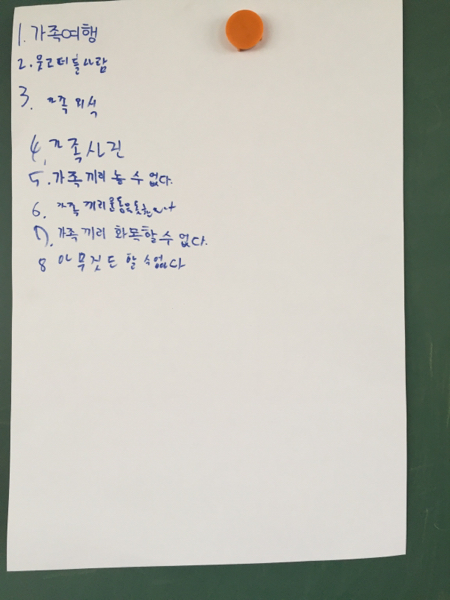 1. 가족여행
2. 웃고 떠들 사람
3. 가족 외식
4. 가족사진
5. 가족끼리 놀 수 없다.
6. 가족끼리 운동을 못한다
7. 가족끼리 화목할 수 없다.
8 아무것도 할 수 없다